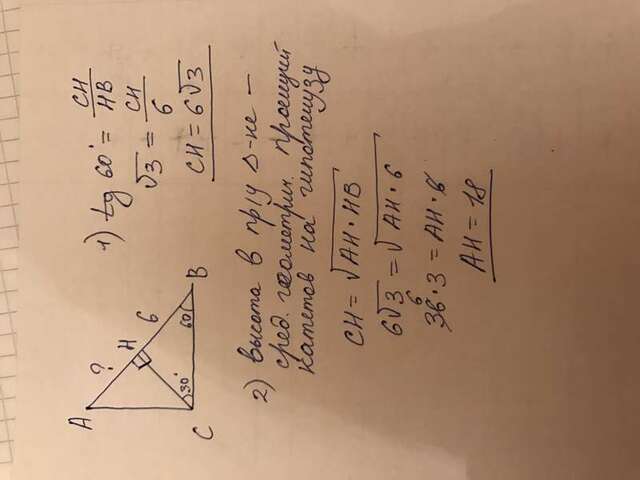 A
?
H
6
30°
60°
C
B
1) tg 60° = CH/HB
√3 = CH/6
CH = 6√3
2) Высота в пр/у Δ-не –
сред. геометрич. проекций
катетов на гипотенузу
CH = √AH · HB
6√3 = √AH · 6
36 · 3 = AH · 6
6
AH = 18